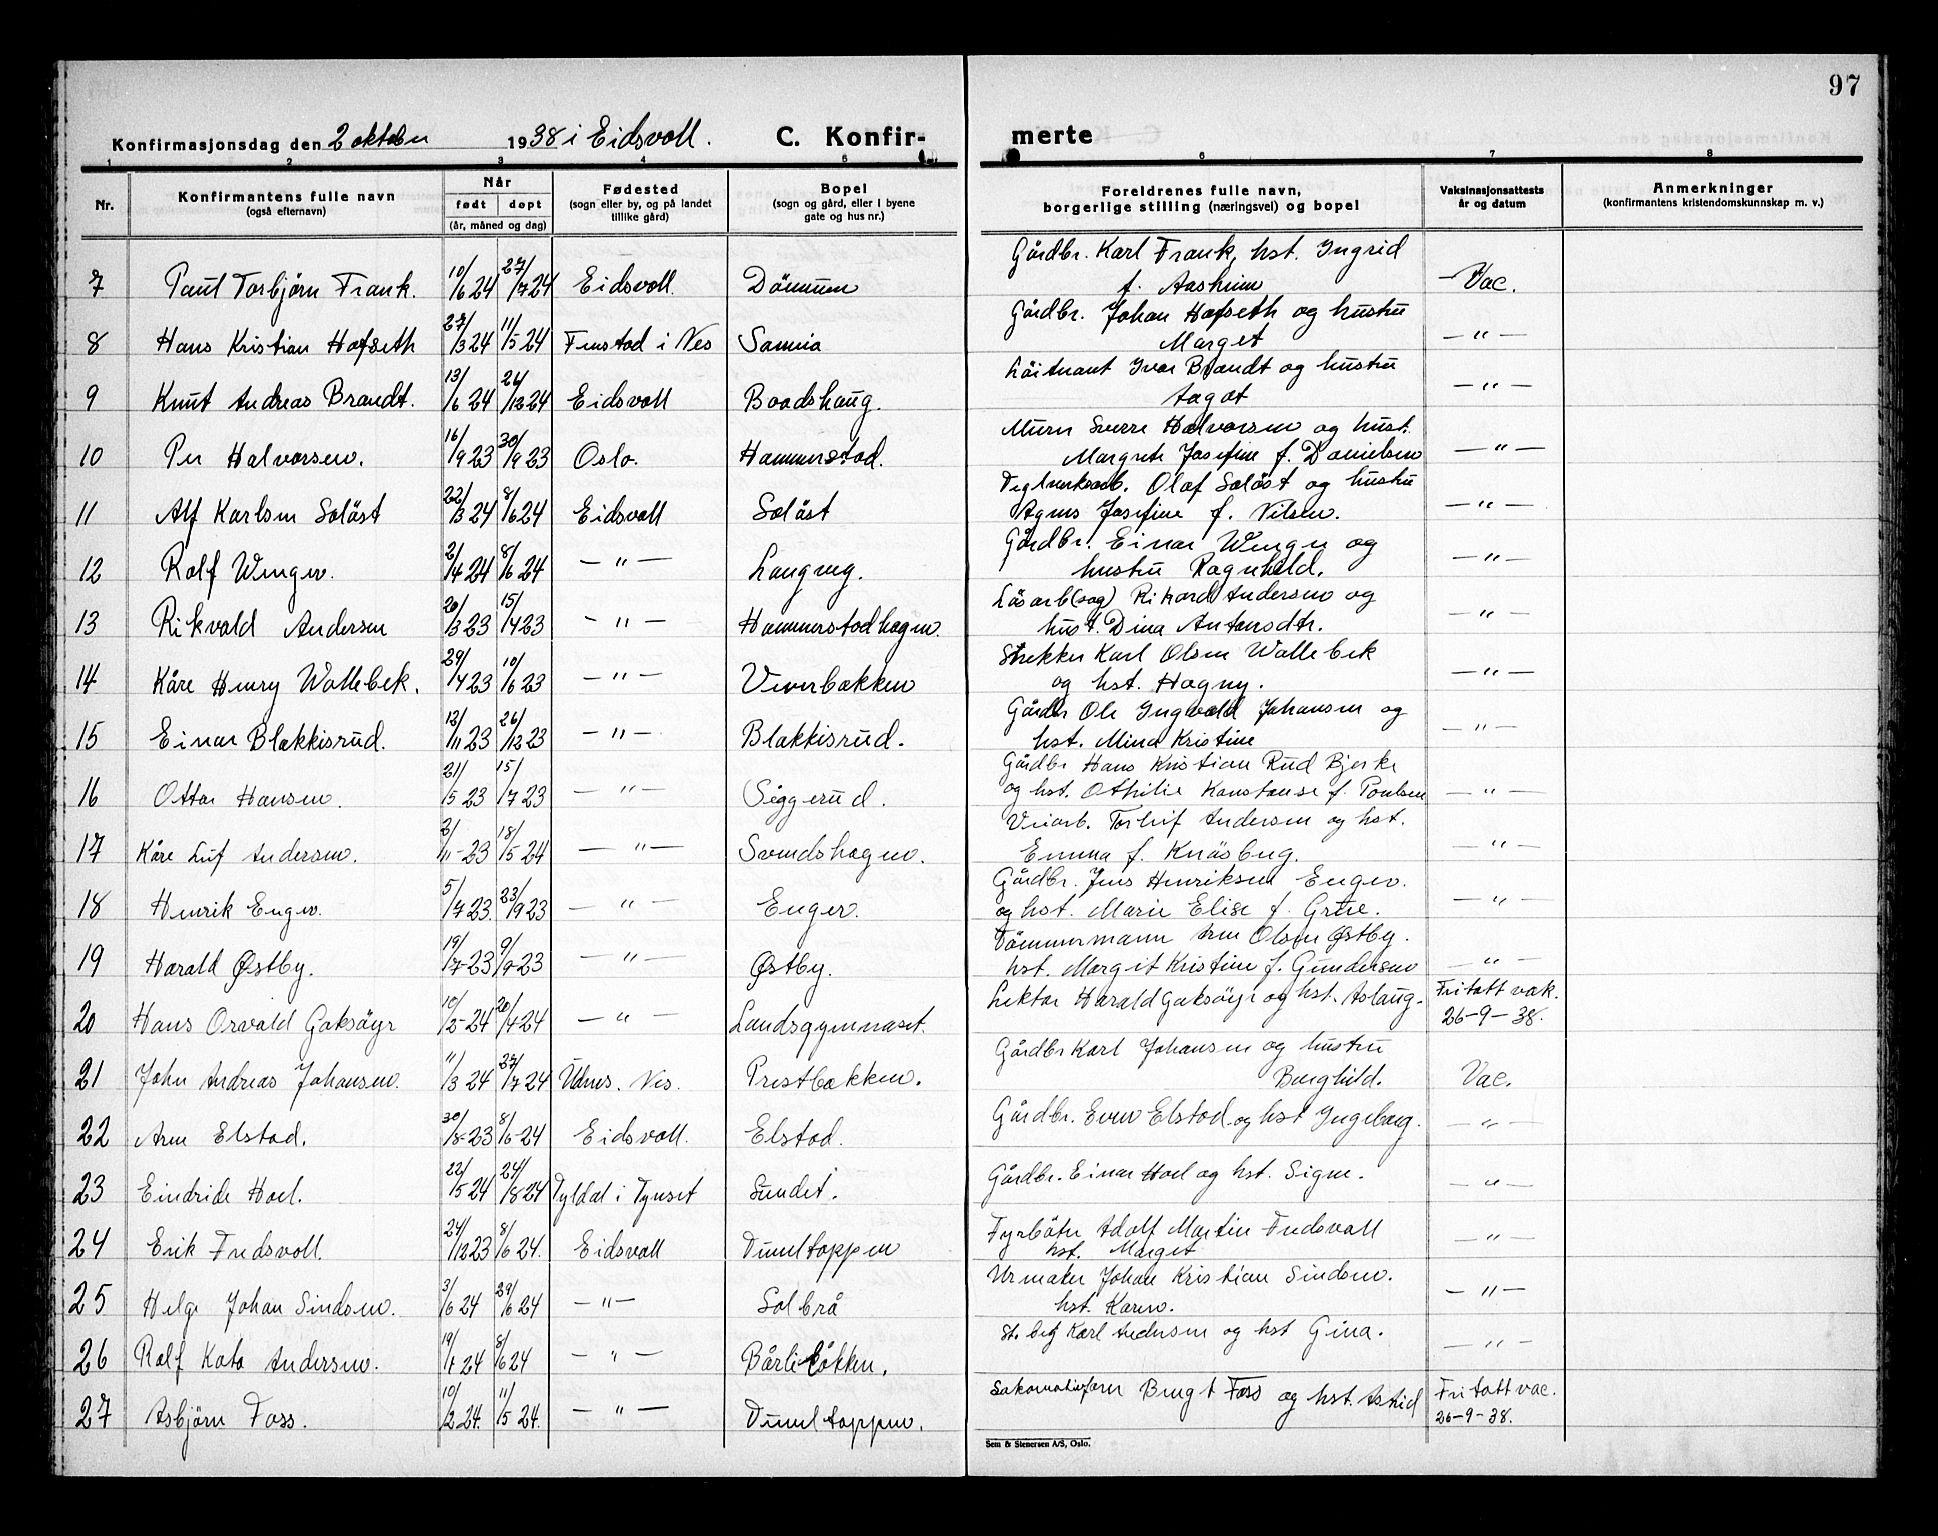 97
Konfirmasjonsdag den 2 oktober 1938 i Eidsvoll. C. Konfir- merte
1 2 3 4 5 6 7 8
Nr. Konfirmantens fulle navn (også efternavn) Når født døpt (år, måned og dag) Fødested (sogn eller by, og på landet tillike gård) Bopel (sogn og gård, eller i byene gate og hus nr.) Foreldrenes fulle navn, borgerlige stilling (næringsvei) og bopel Vaksinasjonsattests år og datum Anmerkninger (konfirmantens kristendomskunnskap m. v.)
7 Paul Torbjørn Frank. 10/6 24 27/7 24 Eidsvoll. Dömmen Gårdbr. Karl Frank, hst. Ingrid
f. Aasheim Vac.
8 Hans Kristian Hofseth 27/3 24 11/5 24 Fenstad i Nes Sannia Gårdbr. Johan Hofseth og hustru
Marget — " —
9 Knut Andreas Brandt. 13/6 24 26/12 24 Eidsvoll Boadshaug. Löitnant Ivar Brandt og hustru
Aagot — " —
10 Per Halvorsen. 16/9 23 30/9 23 Oslo. Hammerstad. Murer Sverre Halvorsen og hust.
Margrete Josefine f. Danielsen — " —
11 Alf Karlsen Solöst 22/3 24 8/6 24 Eidsvoll Solöst Teglverksarb. Olaf Solöst og hustru
Agnes Josefine f. Nilsen. — " —
12 Rolf Wenger. 2/4 24 8/6 24 — " — Langveg. Gårdbr. Einar Wenger og
hustru Ragnhild. — " —
13 Rikvald Andersen 20/3 23 15/4 23 — " — Hammerstadhagen. Lösarb (sag) Rikard Andersen og
hust. Dina Antonsdtr. — "
14 Kåre Henry Wollebek. 29/4 23 10/6 23 — " — Veverbakken Strekker Karl Olsen Wollebek
og hst. Hagny. — " —
15 Einar Blakkisrud. 12/11 23 26/12 23 — " — Blakkisrud. Gårdbr Ole Ingvald Johansen og
hst. Mina Kristine — " —
16 Ottar Hansen. 21/5 23 15/7 23 — " — Siggerud. Gårdbr Hans Kristian Rud Bjerke
og hst. Othilie Konstanse f. Poulsen — " —
17 Kåre Leif Andersen. 2/11-23 18/5 24 — " — Svendshagen. Veiarb. Torleif Andersen og hst.
Emma f. Knäsberg. — " —
18 Henrik Enger. 5/7 23. 23/9 23 — " — Enger. Gårdbr. Jens Henriksen Enger.
og hst. Marie Elise f. — " —
19 Harald Østby. 19/7-23 9/9-23 — " — Østby. Tömmermann Olsen Østby.
hst. Margit Kristine f. Gundersen — " —
20 Hans Orvald Gaksöyr 10/2-24 20/4-24 — " — Landsgymnaset. Lektor Harald Gaksöyr og hst. Aslaug. Fritatt vak.
26-9-38.
21 John Andreas Johansen. 11/3 24 27/7 24 Udnes. Nes. Prestbakken. Gårdbr Karl Johansen og hustru
Borghild. Vac.
22 Arne Elstad. 30/8-23 8/6-24 Eidsvoll. Elstad. Gårdbr. Even Elstad og hst Ingeborg. — " —
23 Eindride Hoel. 22/5 24 24/8 24 Tyldal i Tynset Sundet. Gårdbr. Einar Hoel og hst. Signe. — " —
24 Erik Fredsvoll. 24/12 23 8/6 24. Eidsvoll Dueltoppen Fyrböter Adolf Martin Fredsvoll
hst. Marget — " —
25 Helge Johan Sindsen. 3/6 24 29/6 24 — " — Solbrå Urmaker Johan Kristian Sindsen.
hst. Karen. — " —
26 Rolf Kato Andersen. 19/1 24 8/6 24 — " — Bårlilökken. St. betj Karl Andersen og hst Gina. — " —
27 Asbjörn Foss. 10/2 24. 11/5 24. — " — Dueltoppen. Lokomotivförer Bengt Foss og hst. Astrid Fritatt vac.
26-9-38.
Sem & Stenersen A/S, Oslo.